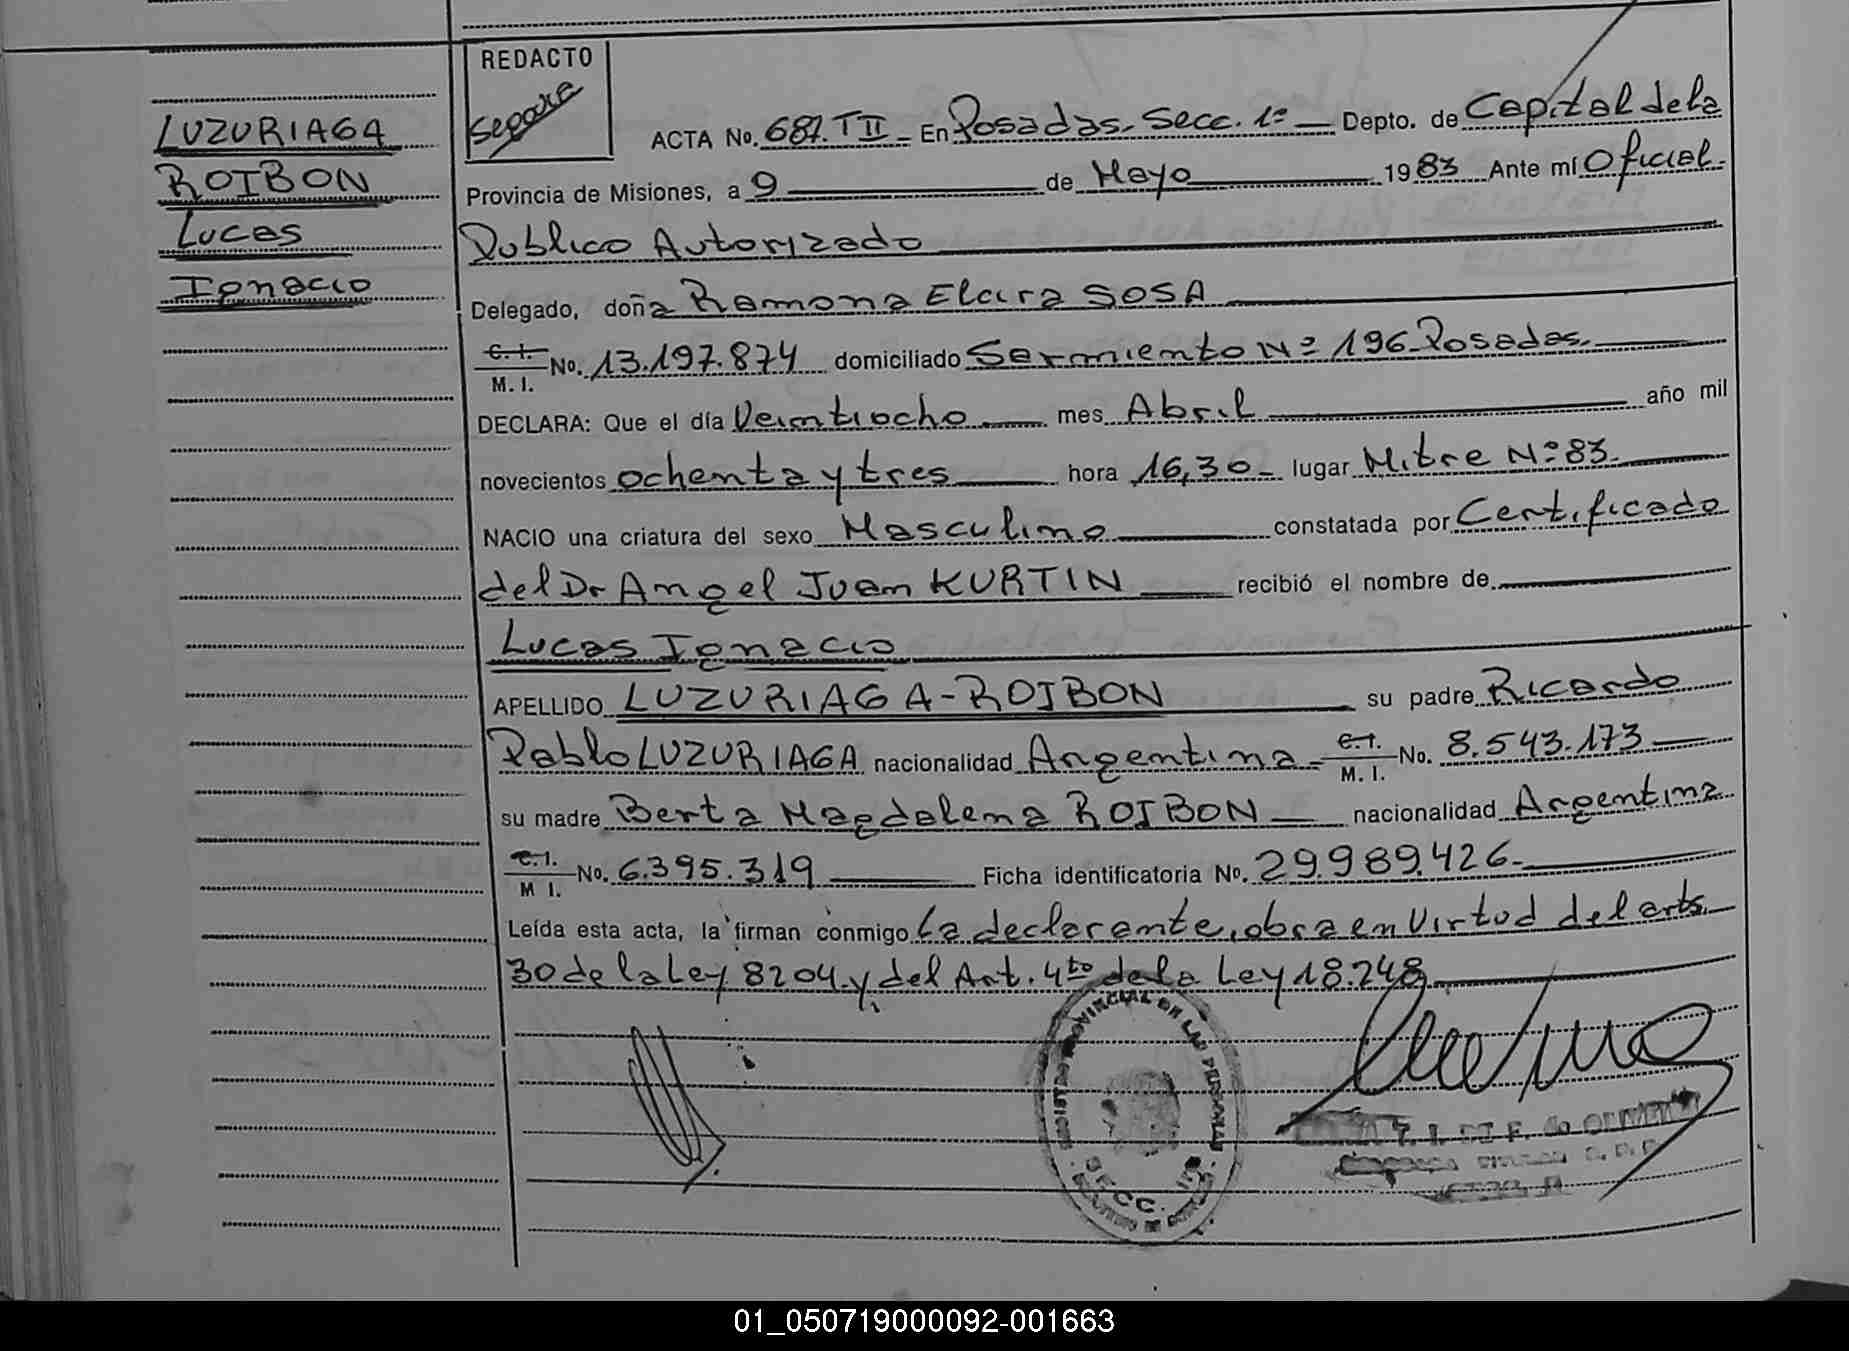 LUZURIAGA
ROIBON
Lucas
Ignacio
REDACTO
ACTA No. 687. T II - En Posadas. Secc. 1ª Depto. de Capital de la
Provincia de Misiones, a 9 de Mayo 1983 Ante mí Oficial
Publico Autorizado
Delegado, doña Ramona Elcira SOSA
C. I. M. I. No. 13.197.874 domiciliado Sarmiento Nº 196 Posadas.
DECLARA: Que el día Veintiocho mes Abril año mil
novecientos ochenta y tres hora 16,30 - lugar Mitre Nº 83.
NACIO una criatura del sexo Masculino constatada por Certificado
del Dr Angel Juan KURTIN recibió el nombre de
Lucas Ignacio
APELLIDO LUZURIAGA-ROIBON su padre Ricardo
Pablo LUZURIAGA nacionalidad Argentina - C. I. M. I. No. 8.543.173
su madre Berta Magdalena ROIBON nacionalidad Argentina
C. I. M I. No. 6.395.319 Ficha identificatoria No. 29.989.426-
Leída esta acta, la firman conmigo La declarante, obra en virtud del arts.
30 de la Ley 8204 y del Art. 4to de la Ley 18.248
PROVINCIAL DE LAS PERSONAS
01_050719000092-001663